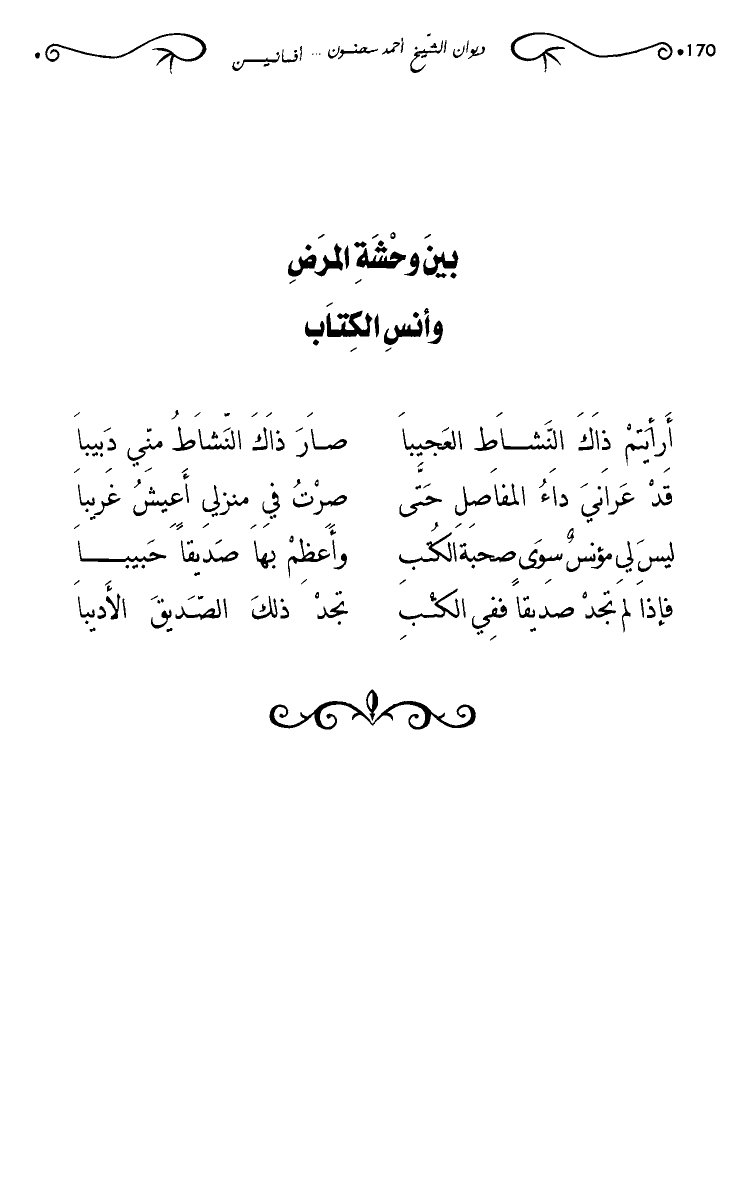 170 ديوان الشّيخ أحمد سحنون ... أفانيــن
بينَ وحْشَةِ المرَضِ
وأنسِ الكِتاَب
أَرأَيتمْ ذاَكَ النَّشــاَط العَجيباَ صـاَرَ ذاَكَ النَّشاَطُ منِّي دَبيباَ
قَدْ عَرَانيَ داَءُ المفاَصلِ حَتَّى صِرْتُ فيِ منزليِ أَعِيشُ غَرِيباَ
ليسَ ليِ مؤنسٌ سوَى صحبَة الكُتبِ وأَعظِمْ بهاَ صَديقاً حَبيبــــاَ
فإذاَ لم تجدْ صديقاً ففيِ الكتْبِ تجدْ ذلكَ الصَّديقَ الأَديباَ